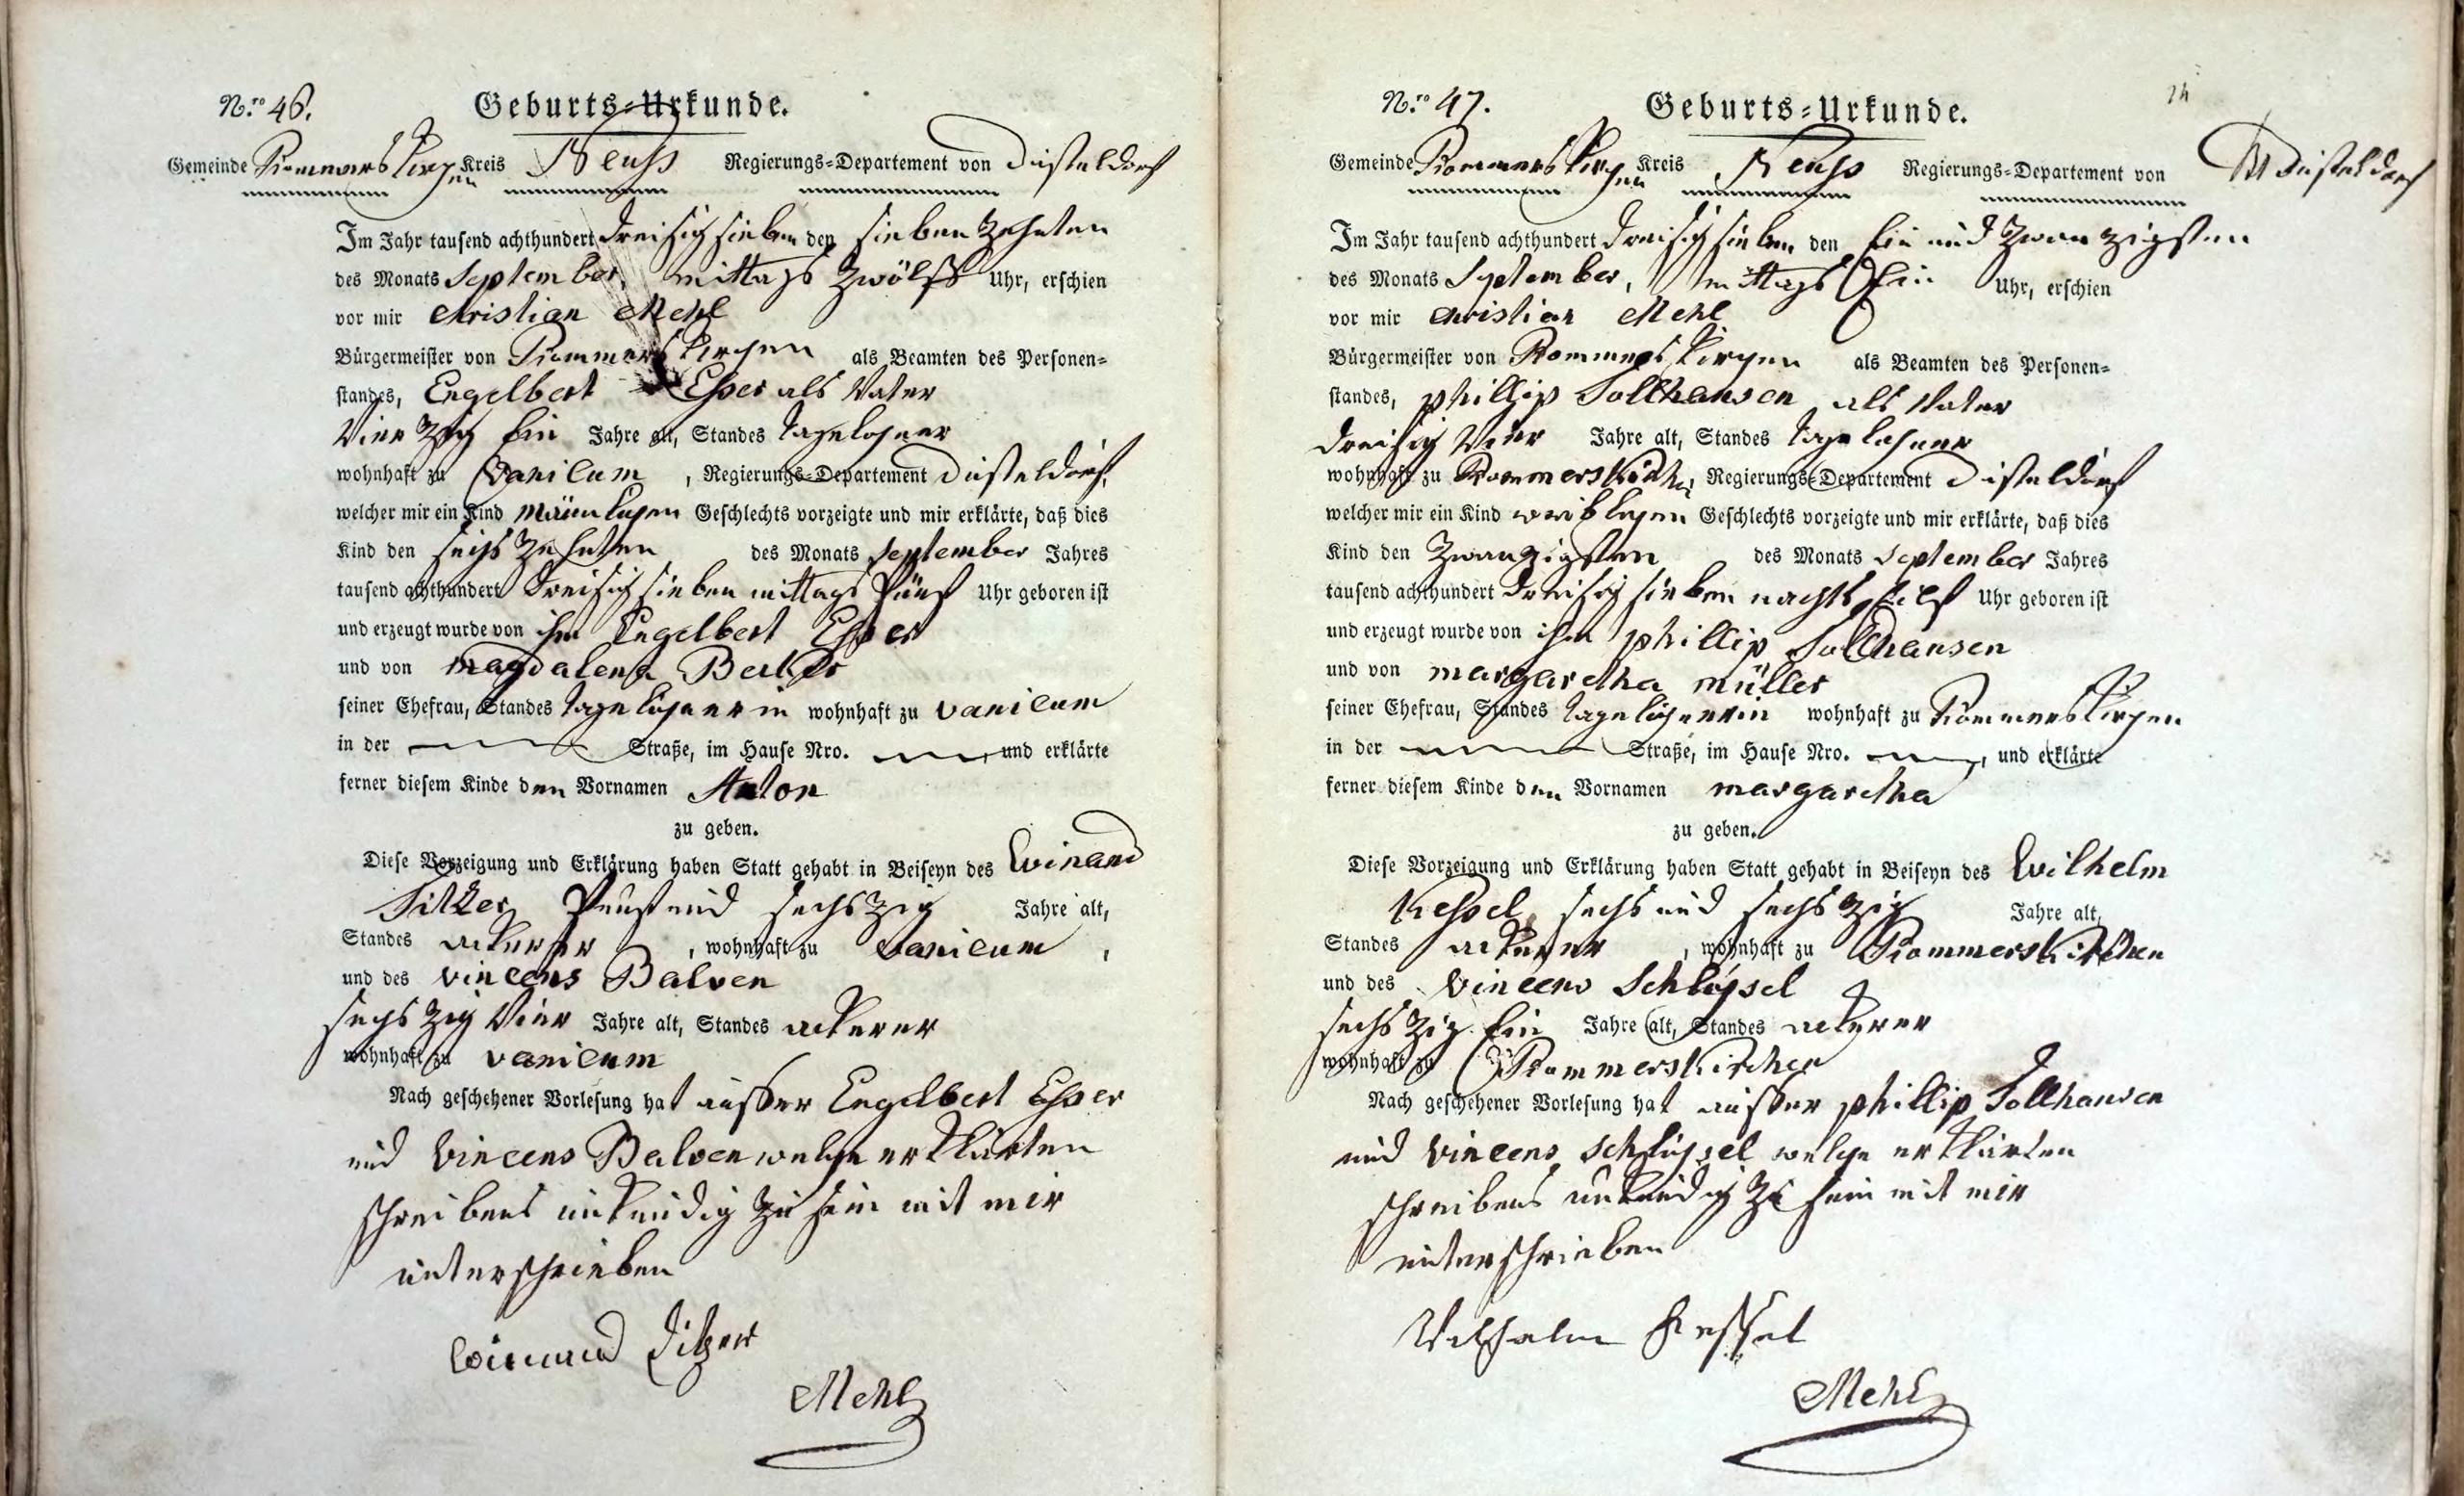 N.ro 46.
Geburts-Urkunde.
Gemeinde Rommerskirchen Kreis Neuss Regierungs-Departement von Düsseldorf
Im Jahr tausend achthundert dreisig sieben den siebenzehnten
des Monats September, mittags zwölf Uhr, erschien
vor mir Christian Mehl
Bürgermeister von Rommerskirchen als Beamten des Personen-
standes, Engelbert Esser als Vater
vierzig Ein Jahre alt, Standes Tagelohner
wohnhaft zu Vanicum, Regierungs-Departement Düsseldorf,
welcher mir ein Kind männlichen Geschlechts vorzeigte und mir erklärte, daß dies
Kind den sechszehnten des Monats September Jahres
tausend achthundert dreisig sieben mittags fünf Uhr geboren ist
und erzeugt wurde von ihm Engelbert Esser
und von Magdalena
seiner Ehefrau, Standes Tagelöhnerin wohnhaft zu Vanicum
in der Straße, im Hause Nro. und erklärte
ferner diesem Kinde den Vornamen Anton
zu geben.
Diese Vorzeigung und Erklärung haben Statt gehabt in Beiseyn des Winand
fünf und sechszig Jahre alt,
Standes Ackerer, wohnhaft zu Vanicum,
und des Vincens Balven
sechszig vier Jahre alt, Standes Ackerer
wohnhaft zu Vanicum
Nach geschehener Vorlesung hat ausser Engelbert Esser
und Vincens Balven welche erklärten
schreibens unkündig zu sein mit mir
unterschrieben
Winand
Mehl
N.ro 47.
Geburts-Urkunde.
24
Gemeinde Rommerskirchen Kreis Neuss Regierungs-Departement von Düsseldorf
Im Jahr tausend achthundert dreisig sieben den Ein und zwanzigsten
des Monats September, mittags Ein Uhr, erschien
vor mir Christian Mehl
Bürgermeister von Rommerskirchen als Beamten des Personen-
standes, Phillip Sollhansen als Vater
dreisig vier Jahre alt, Standes Tagelohner
wohnhaft zu Rommerskirchen, Regierungs-Departement Düsseldorf
welcher mir ein Kind weiblichen Geschlechts vorzeigte und mir erklärte, daß dies
Kind den zwanzigsten des Monats September Jahres
tausend achthundert dreisig sieben nachts Eilf Uhr geboren ist
und erzeugt wurde von ihm Phillip Sollhansen
und von Margaretha Müller
seiner Ehefrau, Standes Tagelöhnerin wohnhaft zu Rommerskirchen
in der Straße, im Hause Nro. , und erklärte
ferner diesem Kinde den Vornamen Margaretha
zu geben.
Diese Vorzeigung und Erklärung haben Statt gehabt in Beiseyn des Wilhelm
Kessel, sechs und sechszig Jahre alt,
Standes Ackerer, wohnhaft zu Rommerskirchen
und des Vincens Schlössel
sechszig Ein Jahre alt, Standes Ackerer
wohnhaft zu Rommerskirchen
Nach geschehener Vorlesung hat ausser Phillip Sollhansen
und Vincens Schlössel welche erklärten
schreibens unkündig zu sein mit mir
unterschrieben
Wilhelm Kessel
Mehl